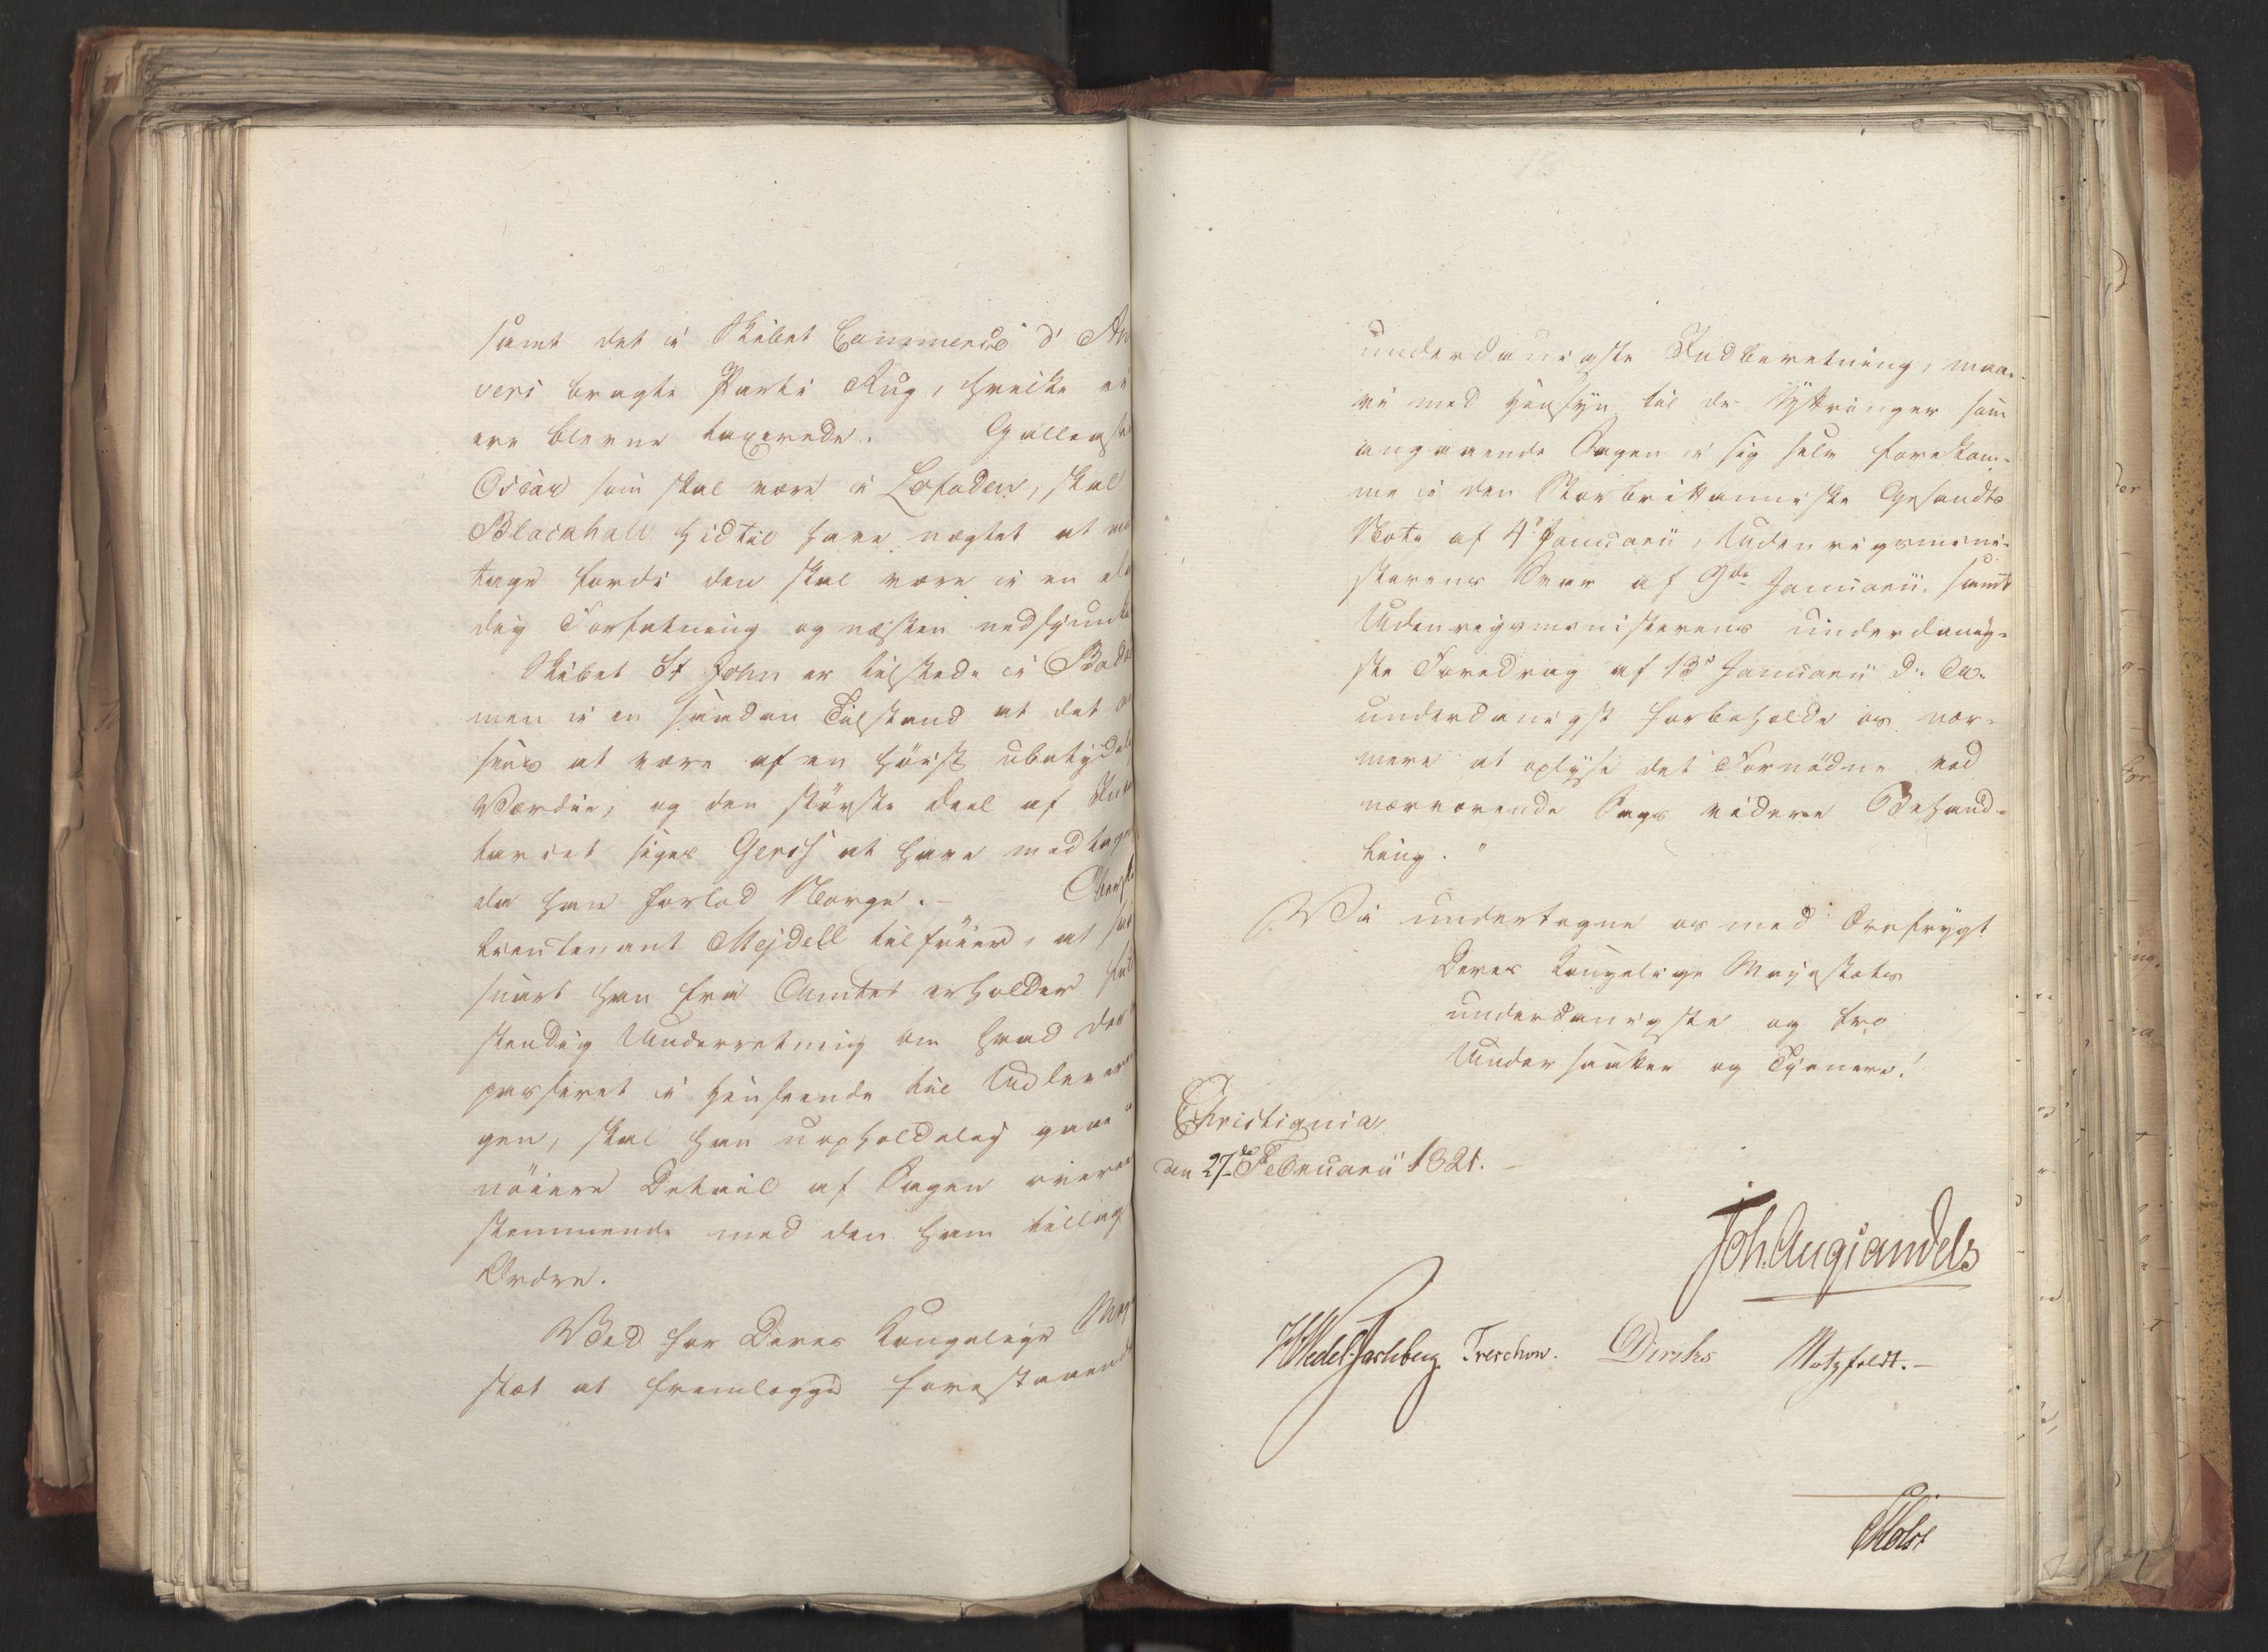 samt det i Skibet Commerce d' An
vers bragte Parti Rug, hvilke ei
ere blevne taxerede. Galleasen
Oscar som skal være i Lofoden, skal
Blackhall hidtil have nægtet at mod
tage fordi den skal være i en elen
dig Forfatning og næsten nedsjunke
Skibet St John er tilstede i Bodø
men i en saadan Tilstand at det an
sees at være af en høist ubetydelig
Værdie, og den største Deel af Inven
tariet siges Gerss at have medtaget
da han forlod Norge. - Oberst
lieutenant Mejdell tilføier, at saa
snart han fra Amtet erholder fuld
stendig Underretning om hvad der er
passeret i Henseende til Udleverin
gen, skal han uopholdelig gaae i
nöiere Detail af Sagen overeens
stemmende med den ham tillagt
Ordre.
Ved for Deres Kongelige Maje
stæt at fremlægge forestaaende
underdanigste Indberetning, maa
vi med Hensyn til de Yttringer som
angaaende Sagen i sig selv forekom-
me i den Storbrittanniske Gesandts
Note af 4de Januarii, Udenrigsmini-
sterens Svar af 9de Januarii, samt
Udenrigsministerens underdanig-
ste Foredrag af 13de Januarii d: A:
underdanigst forbeholde os nær-
mere at oplyse det Fornödne ved
nærværende Sags videre Behand-
ling."
Vi undertegne os med Ærefrygt
Deres Kongelige Majestæts
underdanigste og troe
Undersaatter og Tjenere!
Christiania
den 27de Februarii 1821. -
Joh. Aug Sandels
HWedel-Jarlsberg Treschow. Diriks Motzfeldt. -
Holst